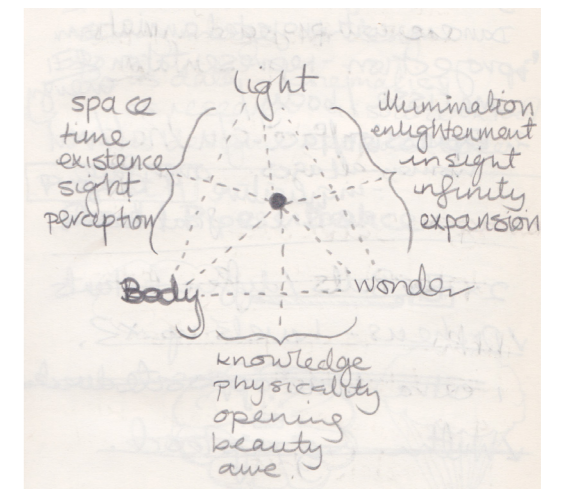 light
space
time
existence
sight
perception
illumination
enlightenment
insight
infinity
expansion
Body
wonder
knowledge
physicality
opening
beauty
awe.